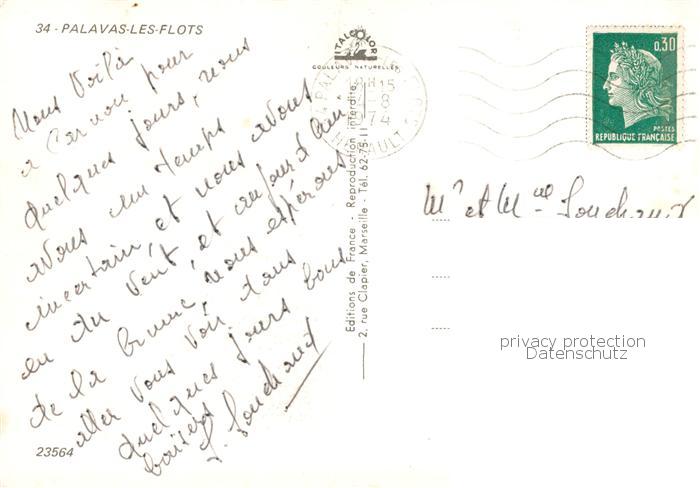 34 - PALAVAS-LES-FLOTS
Nous Voilà
a Carnon pour
quelques jours, nous
avons un temps
incertain, et nous avons
eu du Vent, et aujourd'hui
de la brume, nous espérons
aller vous voir dans
quelques jours bons
baisers
23564
ITALCOLOR
COULEURS NATURELLES
Editions de France - Reproduction interdite
2, rue Clapier, Marseille - Tél. 62-75-11
PALAVAS
HERAULT
0,30
POSTES
REPUBLIQUE FRANÇAISE
Mr et Mme
privacy protection
Datenschutz